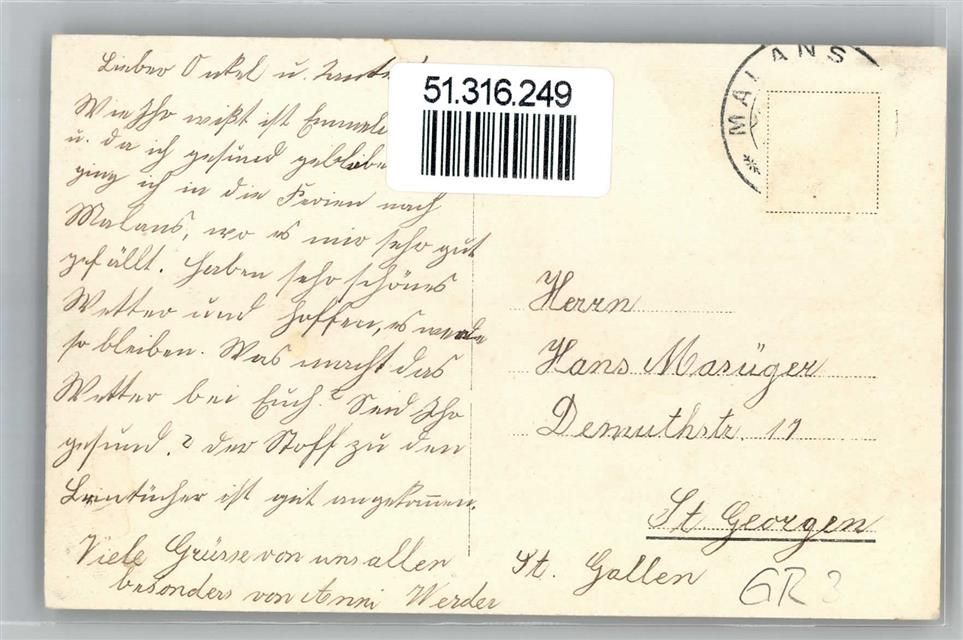 Lieber Onkel u. Tante!
Wie Ihr wißt ist
u. da ich gesund
ging ich in die Ferien nach
Malans, wo es mir sehr gut
gefällt. Haben sehr schönes
Wetter und hoffen, es werde
so bleiben. Was macht das
Wetter bei Euch? Seid Ihr
gesund? Der Stoff zu den
Leintücher ist gut angekommen.
Viele Grüsse von uns allen
besonders von Anni Werder
51.316.249
* MALANS
Herrn
Hans Masüger
Demuthstr. 17
St. Georgen
St. Gallen
GR